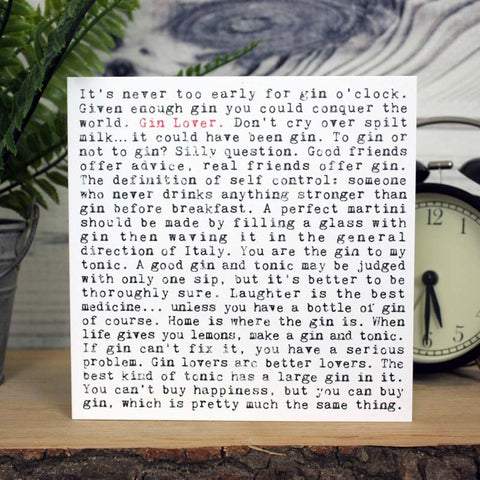 It's never too early for gin o'clock.
Given enough gin you could conquer the
world. Gin Lover. Don't cry over spilt
milk... it could have been gin. To gin or
not to gin? Silly question. Good friends
offer advice, real friends offer gin.
The definition of self control: someone
who never drinks anything stronger than
gin before breakfast. A perfect martini
should be made by filling a glass with
gin then waving it in the general
direction of Italy. You are the gin to my
tonic. A good gin and tonic may be judged
with only one sip, but it's better to be
thoroughly sure. Laughter is the best
medicine... unless you have a bottle of gin
of course. Home is where the gin is. When
life gives you lemons, make a gin and tonic.
If gin can't fix it, you have a serious
problem. Gin lovers are better lovers. The
best kind of tonic has a large gin in it.
You can't buy happiness, but you can buy
gin, which is pretty much the same thing.
12
1
5
6